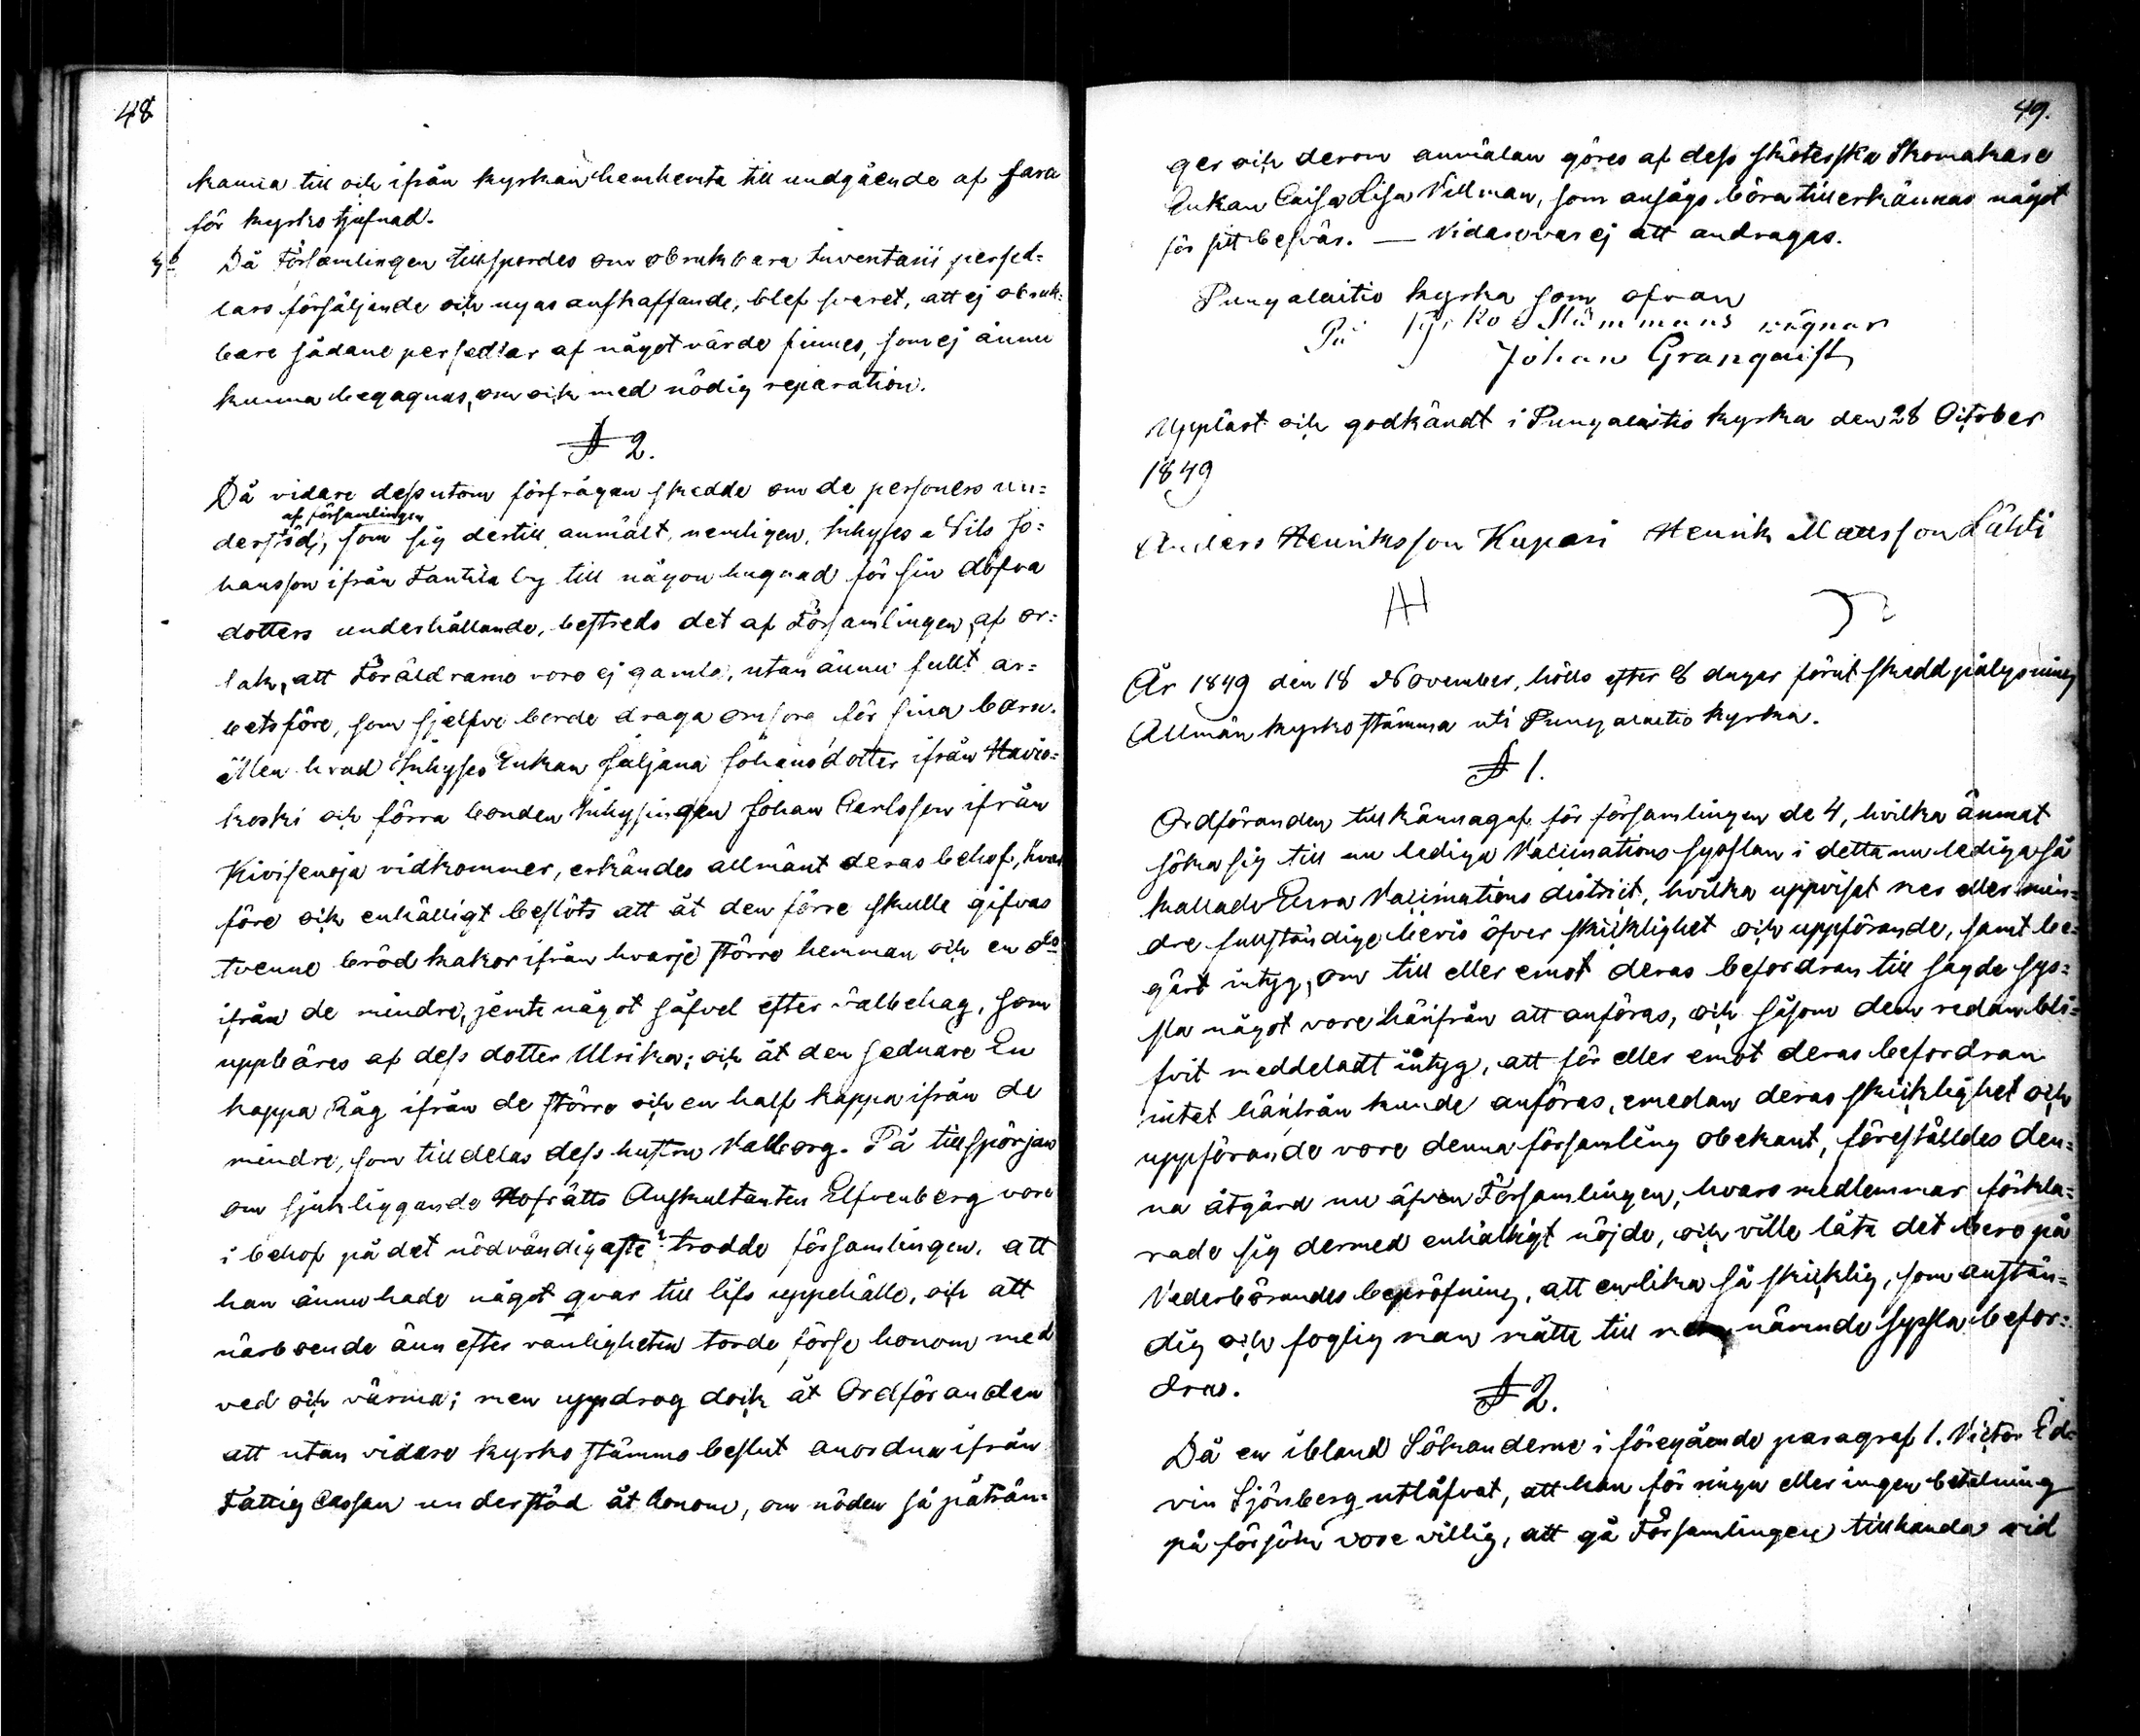 48
kanna till och ifrån kyrkan hemhemta till undgående af fara
för kyrkotjufnad.
3o Då Församlingen tillspordes om obrukbara Inventarii persed-
lars försäljande och nyas anskaffande, blef svaret, att ej obruk-
bare sådane persedlar af något värde finnes, som ej ännu
kunna begagnas, om och med nödig reparation.
§ 2.
Då vidare dessutom förfrågan skedde om de personers un=
af församlingen
derstöd, som sig dertill anmält, nemligen, Inhyses Nils Jo=
hansson ifrån Tanttila by till någon hugnad för sin döfva
dotters underhållande, bestreds det af Församlingen, af or=
sak, att Föräldrarne voro ej gamla, utan ännu fullt ar=
betsföre, som sjelfve borde draga omsorg för sina barn.
Men hvad Inhyses Enkan Juljana Johansdotter ifrån Havio=
koski och förra bonden Inhysingen Johan Carlsson ifrån
Kivisenoja vidkommer, erkändes allmänt deras behof, hvar
före och enhälligt beslöts att åt den förre skulle gifvas
tvenne brödkakor ifrån hvarje större hemman och en do
ifrån de mindre, jemte något såfvel efter välbehag, som
uppbäres af dess dotter Ulrika; och åt den sednare En
kappa Råg ifrån de större och en half kappa ifrån de
mindre, som tilldelas dess hustru Valborg. På tillspörjan
om sjukliggande Hofrätts Auskultanten Elfvenberg vore
i behof på det nödvändigaste? trodde församlingen, att
han ännu hade något qvar till lifs uppehälle, och att
närboende änn efter vanligheten torde förse honom med
ved och värma; men uppdrog dock åt Ordföranden
att utan vidare kyrkostämmobeslut anordna ifrån
Fattig Cassan understöd åt honom, om nöden så påträn=
49.
ger och derom anmälan göres af dess sköterska Skomakare
Enkan Caisa Lisa Villman, som ansågs böra tillerkännas något
för sitt besvär. — Vidare var ej att andragas.
Pungalaitio kyrka som ofvan
På Kyrko Stämmans vägnar
Johan Granqvist
Uppläst och godkändt i Pungalaitio kyrka den 28 October
1849
Anders Henriksson Kupari Henrik Mattsson Lähti
AH
År 1849 den 18 November, hölls efter 8 dagar förut skedd pålysning
Allmän kyrkostämma uti Pungalaitio kyrka.
§ 1.
Ordföranden tillkännagaf för församlingen de 4, hvilka ämnat
söka sig till nu lediga Vaccinations sysslan i detta nu lediga så
kallade Eura Vaccinations district, hvilka uppvisat mer eller min=
dre fullständige bevis öfver skicklighet och uppförande, samt be=
gärt intyg, om till eller emot deras befordran till sagde sys=
sla något vore härifrån att anföras, och såsom dem redan bli=
fvit meddeladt intyg, att för eller emot deras befordran
intet härifrån kunde anföras, emedan deras skicklighet och
uppförande vore denna församling obekant, föreställdes den=
na åtgärd nu äfven Församlingen, hvars medlemmar förkla=
rade sig dermed enhälligt nöjde, och ville låta det bero på
Vederbörandes bepröfning, att en lika så skicklig, som anstän=
dig och foglig man måtte till nämnde syssla befor=
dras.
§ 2.
Då en ibland Sökanderne i föregående paragraf 1. Victor Ed=
vin Sjönberg utlåfvat, att han för ringa eller ingen betalning
på försök vore villig, att gå Församlingen tillhanda vid